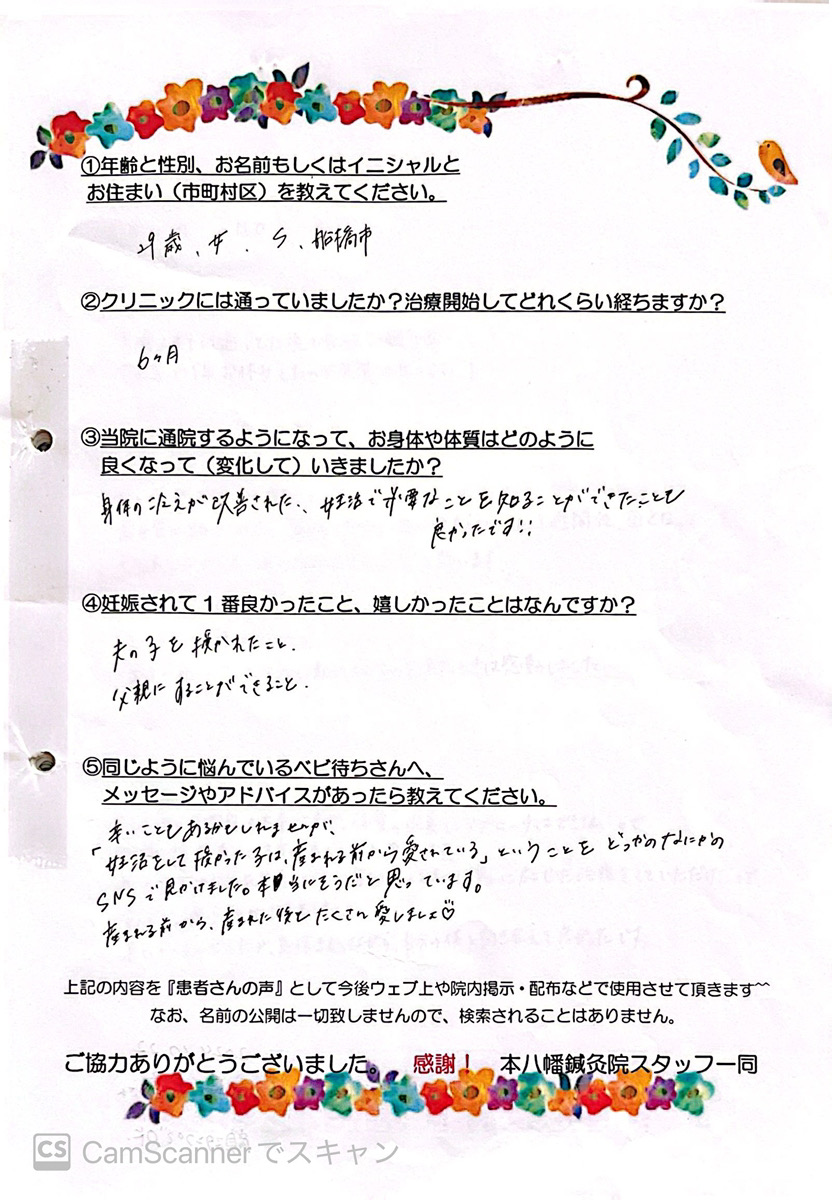 ①年齢と性別、お名前もしくはイニシャルと
お住まい（市町村区）を教えてください。
29歳、女、S、船橋市
②クリニックには通っていましたか？治療開始してどれくらい経ちますか？
6ヶ月
③当院に通院するようになって、お身体や体質はどのように
良くなって（変化して）いきましたか？
身体の冷えが改善された、妊活で必要なことを知ることができたことも
良かったです!!
④妊娠されて１番良かったこと、嬉しかったことはなんですか？
夫の子を授かれたこと.
父親にすることができること.
⑤同じように悩んでいるベビ待ちさんへ、
メッセージやアドバイスがあったら教えてください。
辛いこともあるかもしれませんが、
「妊活をして授かった子は、産まれる前から愛されている」ということをどっかのなにかの
SNSで見かけました。本当にそうだと思っています。
産まれる前から、産まれた後もたくさん愛しましょ♡
上記の内容を『患者さんの声』として今後ウェブ上や院内掲示・配布などで使用させて頂きます^^
なお、名前の公開は一切致しませんので、検索されることはありません。
ご協力ありがとうございました。 感謝！ 本八幡鍼灸院スタッフ一同
CS CamScanner でスキャン